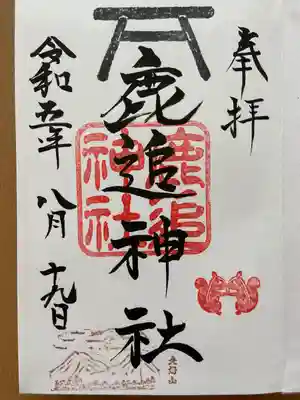 奉拝
鹿追神社
鹿追
神社
令和五年
八月
十九日
夫婦山